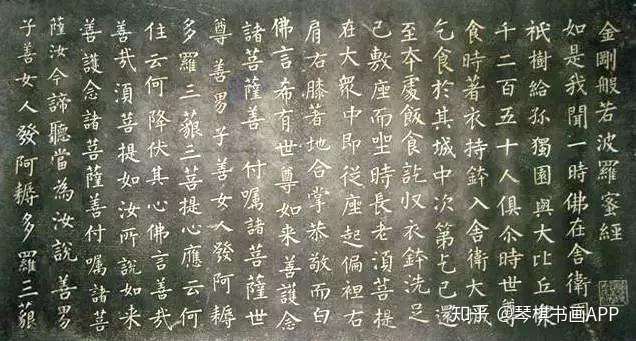 金剛般若波羅蜜經
如是我聞一時佛在舍衛國
祇樹給孤獨園與大比丘眾
千二百五十人俱尒時世尊
食時著衣持鉢入舍衛大城
乞食於其城中次第乞已還
至本處飯食訖収衣鉢洗足
已敷座而坐時長老須菩提
在大眾中即從座起偏袒右
肩右膝著地合掌恭敬而白
佛言希有世尊如来善護念
諸菩薩善付囑諸菩薩世
尊善男子善女人發阿耨
多羅三藐三菩提心應云何
住云何降伏其心佛言善哉
善哉須菩提如汝所說如来
善護念諸菩薩善付囑諸菩
薩汝今諦聽當為汝說善男
子善女人發阿耨多羅三藐
知乎 @琴棋书画APP